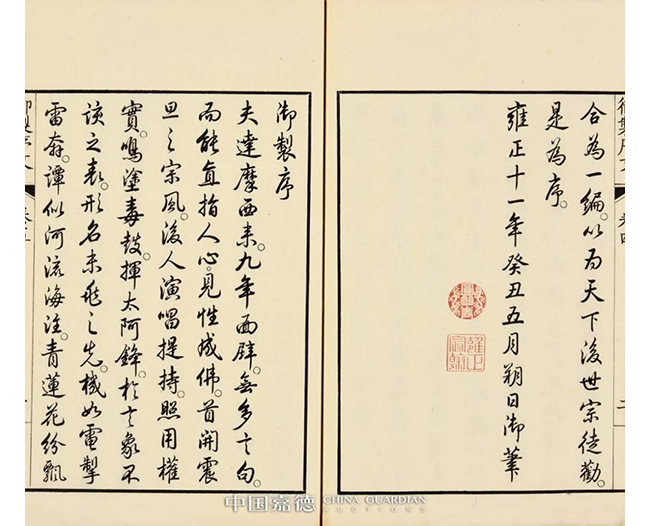 合為一編。以為天下後世宗徒勸。
是為序。
雍正十一年癸丑五月朔日御筆
雍正宸翰
御製序
夫達摩西来。九年面壁。無多言句。
而能直指人心。見性成佛。首開震
旦之宗風。後人演唱提持。照用權
實。鳴塗毒鼓。揮太阿鋒。於言象不
該之表。形名未兆之先。機如電掣
雷奔。譚似河流海注。青蓮花紛飄
中国嘉德 CHINA GUARDIAN
AUCTIONS